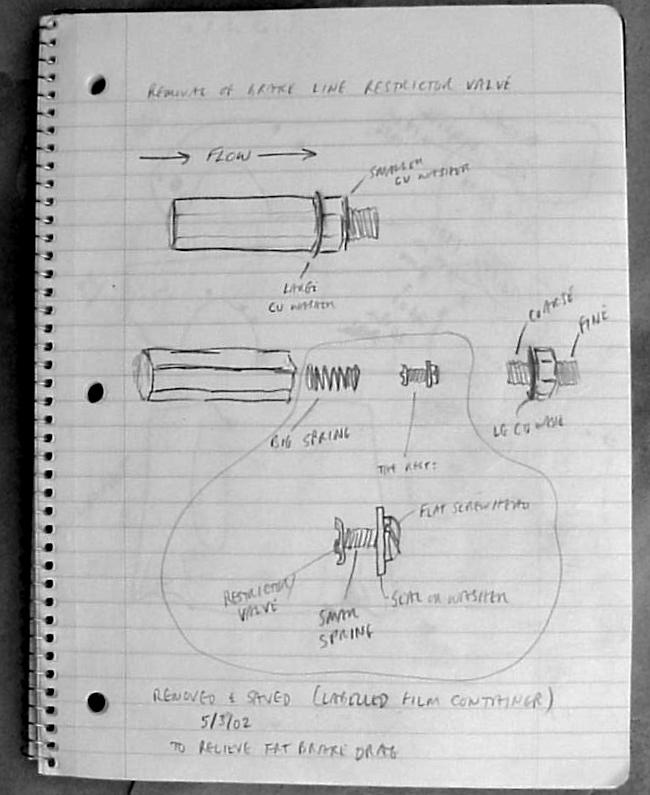 REMOVAL OF BRAKE LINE RESTRICTOR VALVE
FLOW
SMALLER
CU WASHER
LARGE
CU WASHER
COARSE
FINE
BIG SPRING
LG CU WASH
THE REST:
FLAT SCREWHEAD
RESTRICTOR
VALVE
SMALL
SPRING
SEAL OR WASHER
REMOVED & SAVED (LABELLED FILM CONTAINER)
5/3/02
TO RELIEVE FRT BRAKE DRAG